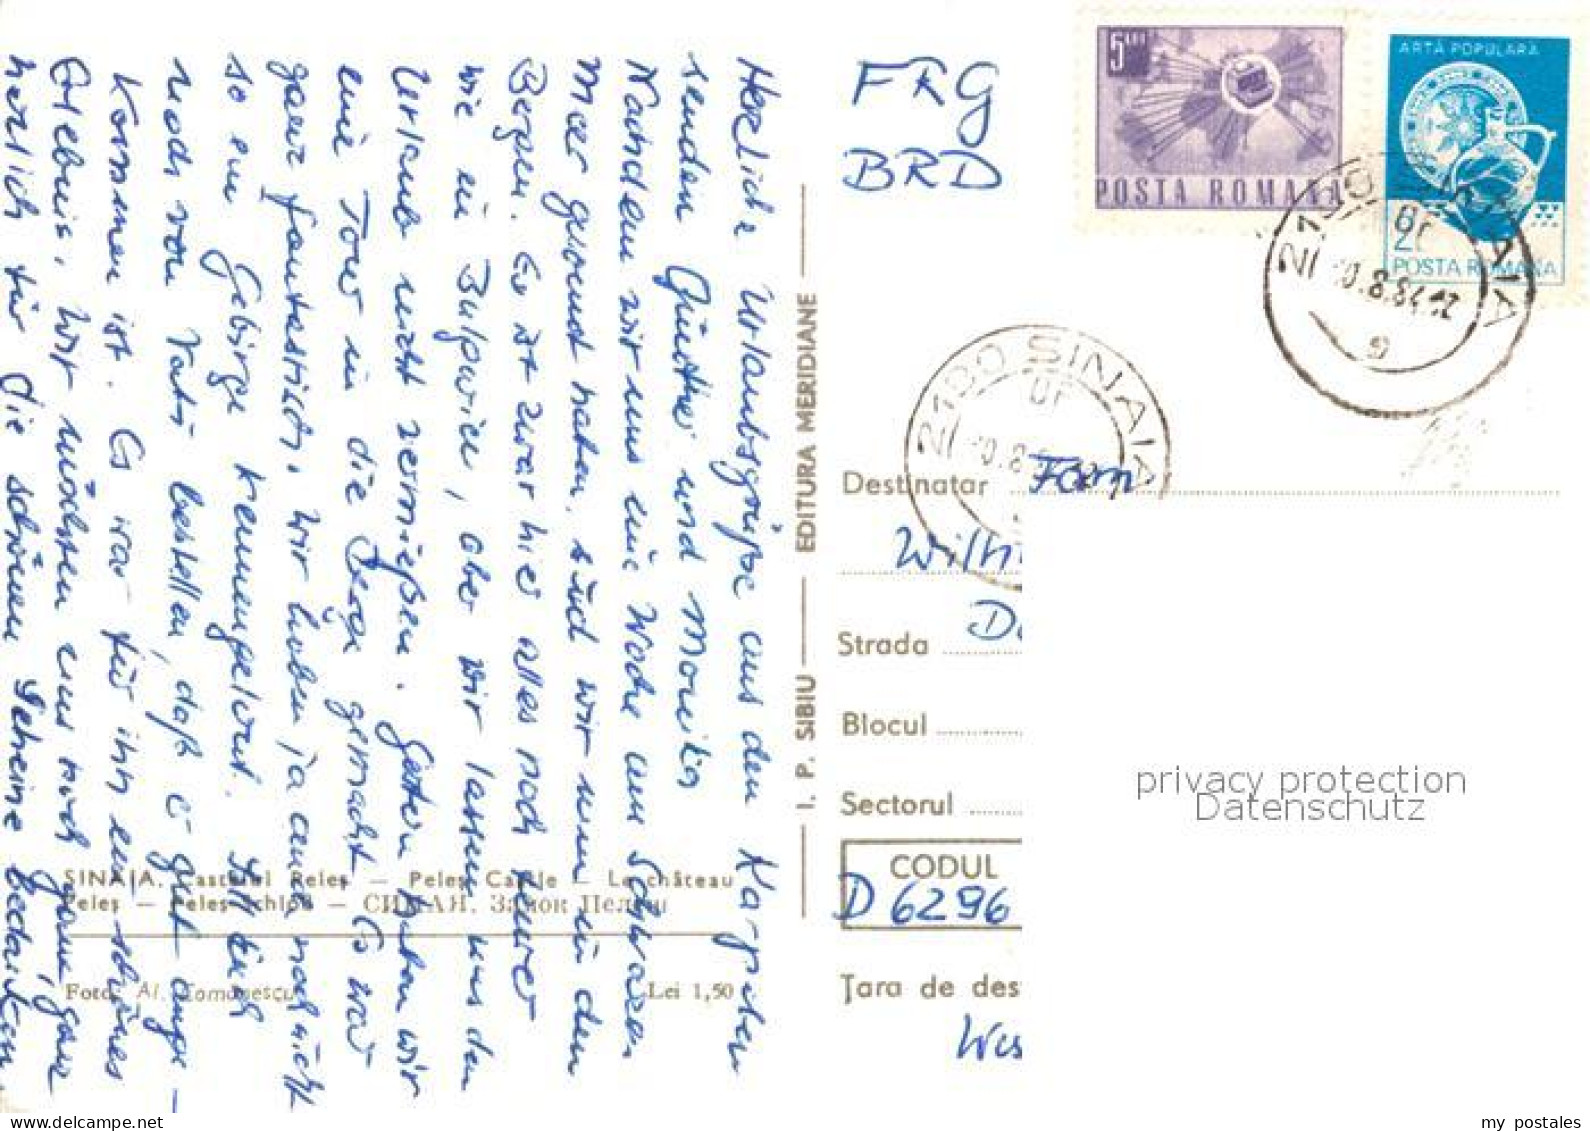 Herzliche Urlaubsgrüße aus den Karpaten
senden Günther und Monika
Nachdem wir uns eine Woche am Schwarzen
Meer gesonnt haben, sind wir nun in den
Bergen. Es ist zwar hier alles noch teurer
wie in Bulgarien, aber wir lassen uns den
Urlaub nicht vermießen. Gestern haben wir
eine Tour in die Berge gemacht. Es war
ganz fantastisch. Wir haben ja auch noch nicht
so ein Gebirge kennengelernt. Soll Euch
noch von Vati bestellen, daß er gut ange-
kommen ist. Es war für ihn ein schönes
Erlebnis. Wir möchten uns noch ganz, ganz
herzlich für die schönen Scheine bedanken.
SINAIA. Castelul Peleș — Peleș Castle — Le château
Peleș — Peleș Schloß — СИНАЯ. Замок Пелеш
Foto: Al. Comănescu
Lei 1,50
I. P. SIBIU — EDITURA MERIDIANE
FRG
BRD
5 LEI
POSTA ROMANA
ARTĂ POPULARĂ
2L
POSTA ROMANA
2180 SINAIA
10.8.84.12
2180 SINAIA
Destinatar Fam
Wilh
Strada
Blocul
Sectorul
CODUL
D 6296
Țara de des
Wes
privacy protection
Datenschutz
my postales